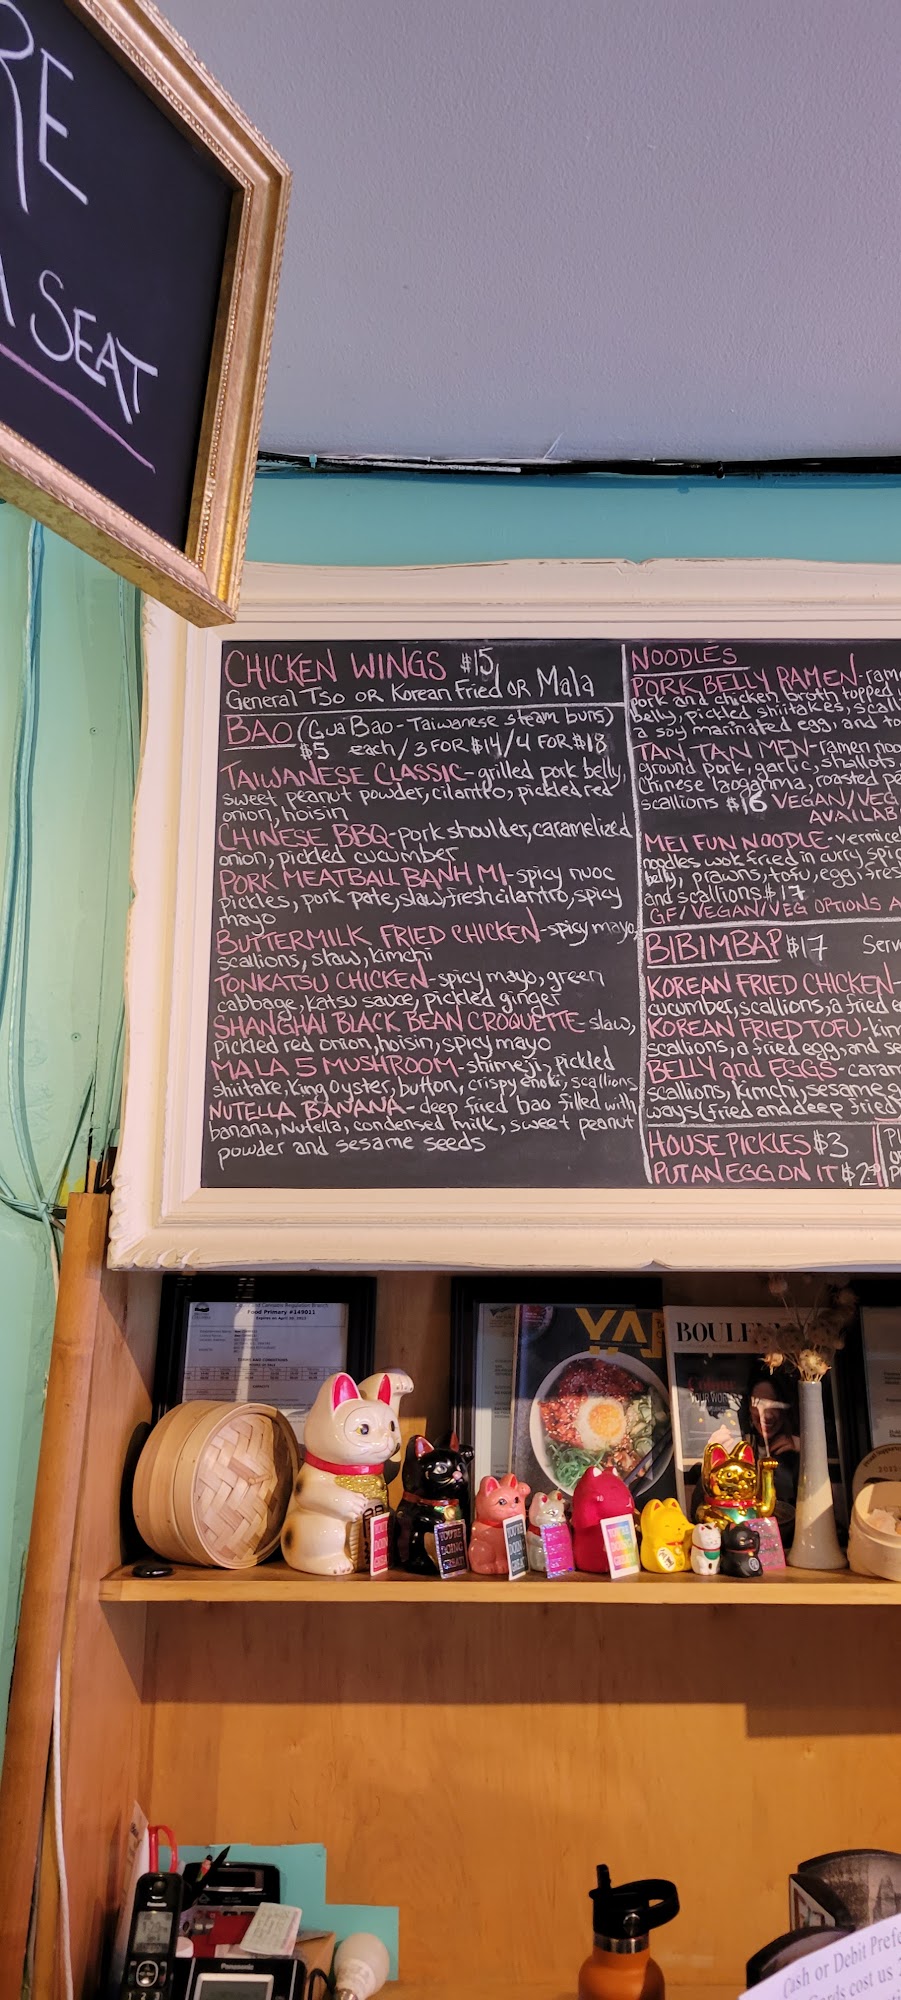 RE
SEAT
CHICKEN WINGS $15
General Tso OR Korean Fried OR Mala
BAO (Gua Bao - Taiwanese steam buns)
$5 each / 3 FOR $14 / 4 FOR $18
TAIWANESE CLASSIC - grilled pork belly,
sweet peanut powder, cilantro, pickled red
onion, hoisin
CHINESE BBQ - pork shoulder, caramelized
onion, pickled cucumber
PORK MEATBALL BANH MI - spicy nuoc
pickles, pork pate, slaw, fresh cilantro, spicy
mayo
BUTTERMILK FRIED CHICKEN - spicy mayo
scallions, slaw, kimchi
TONKATSU CHICKEN - spicy mayo, green
cabbage, katsu sauce, pickled ginger
SHANGHAI BLACK BEAN CROQUETTE - slaw,
pickled red onion, hoisin, spicy mayo
MALA 5 MUSHROOM - shimeji, pickled
shiitake, King Oyster, button, crispy enoki, scallions
NUTELLA BANANA - deep fried bao filled with
banana, Nutella, condensed milk, sweet peanut
powder and sesame seeds
NOODLES
PORK BELLY RAMEN - rame
pork and chicken broth topped
belly, pickled shiitakes, scall
a soy marinated egg, and to
TAN TAN MEN - ramen noo
ground pork, garlic, shallots,
Chinese laoganma, roasted pe
scallions $16 VEGAN/VEG
AVAILAB
MEI FUN NOODLE - vermicel
noodles wok fried in curry spic
belly, prawns, tofu, egg, fres
and scallions $17
GF/VEGAN/VEG OPTIONS A
BIBIMBAP $17 Serv
KOREAN FRIED CHICKEN -
cucumber, scallions, a fried e
KOREAN FRIED TOFU - kim
scallions, a fried egg, and se
BELLY and EGGS - caram
scallions, kimchi, sesame g
ways (fried and deep fried)
HOUSE PICKLES $3
PUT AN EGG ON IT $2.50
Food Primary #149011
YA
BOULE
YOU'RE DOING GREAT
Panasonic
Panasonic
Cash or Debit Prefe
Cards cost us